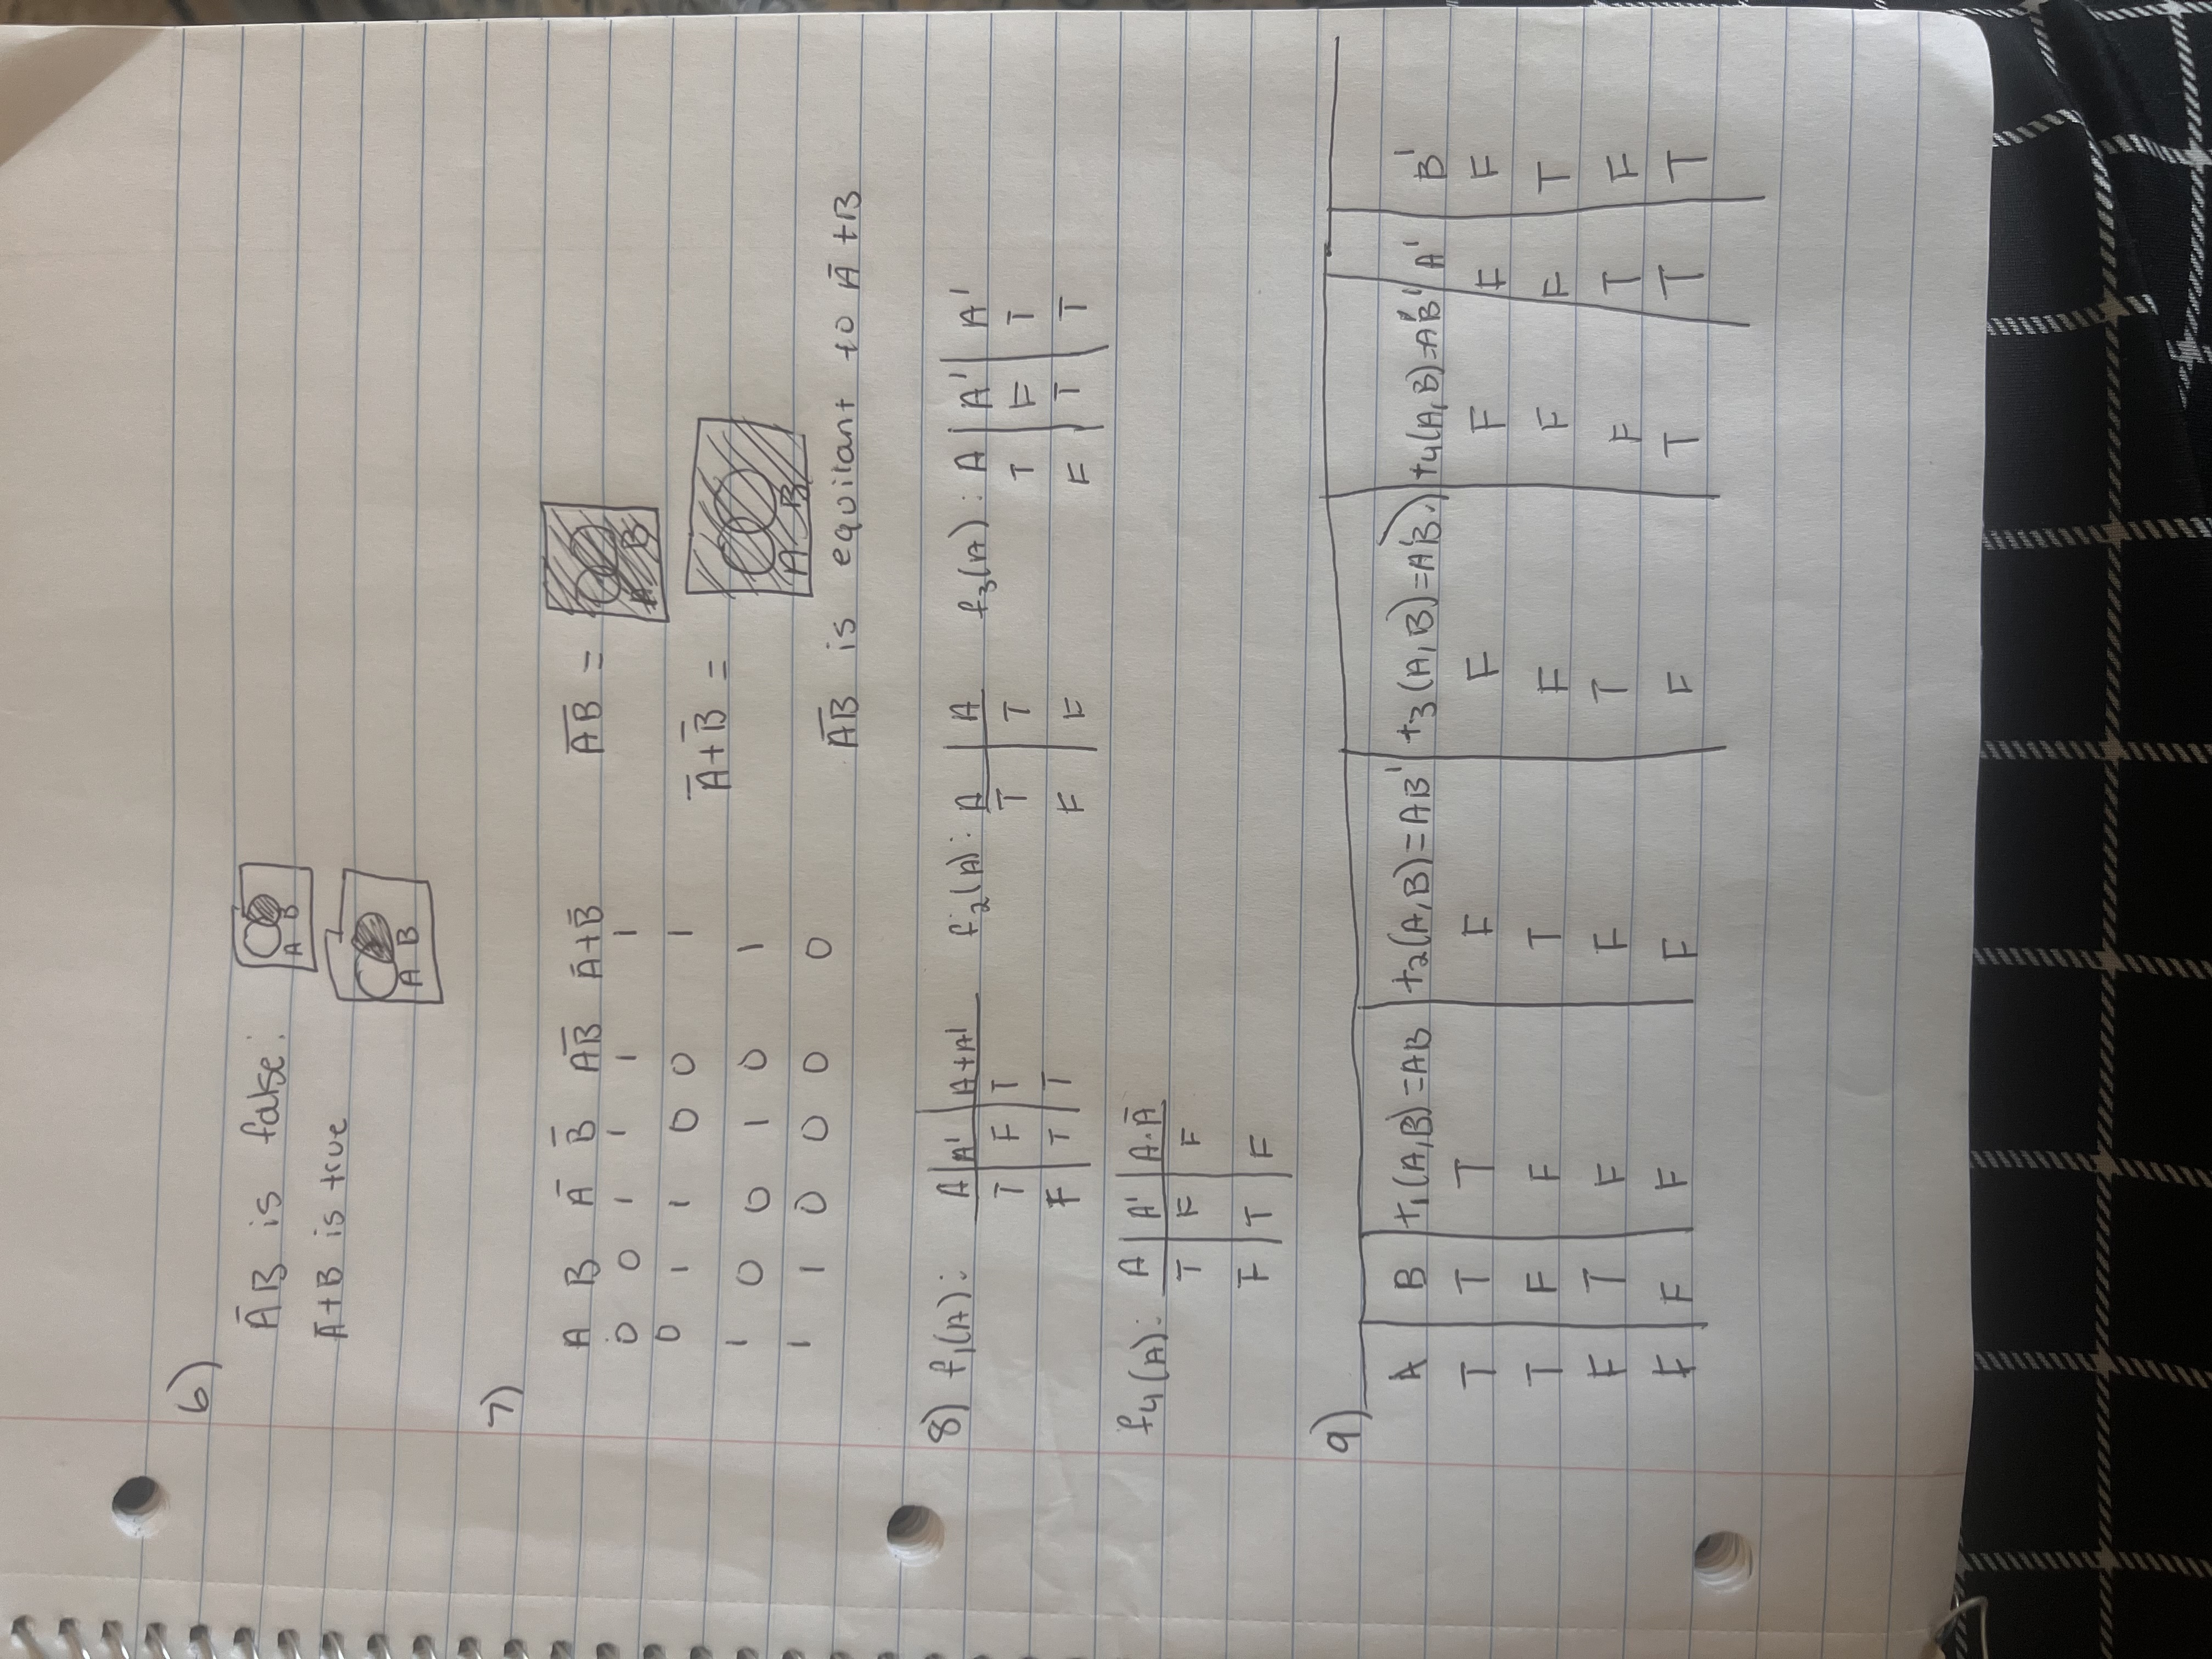 6)
ĀB is false:
A B
Ā+B is true
A B
7)
A B Ā B̅ A̅B̅ Ā+B̅
0 0 1 1 1 1
0 1 1 0 0 1
1 0 0 1 0 1
1 1 0 0 0 0
A̅B̅ =
A B
Ā+B̅ =
A B
A̅B̅ is equilant to Ā+B
8) f₁(A): A A' A+A'
T F T
F T T
f₂(A): A A
T T
F F
f₃(A): A A' A'
T F T
F T T
f₄(A): A A' A·Ā
T F F
F T F
9)
A B t₁(A,B)=AB t₂(A,B)=AB' t₃(A,B)=A'B.) t₄(A,B)=A'B' A' B'
T T T F F F F F
T F F T F F F T
F T F F T F T F
F F F F F T T T